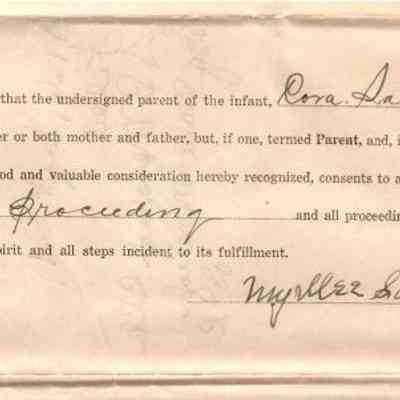 that the undersigned parent of the infant, Cora. Sa
er or both mother and father, but, if one, termed Parent, and, i
od and valuable consideration hereby recognized, consents to a
Proceeding and all proceedin
pirit and all steps incident to its fulfillment.